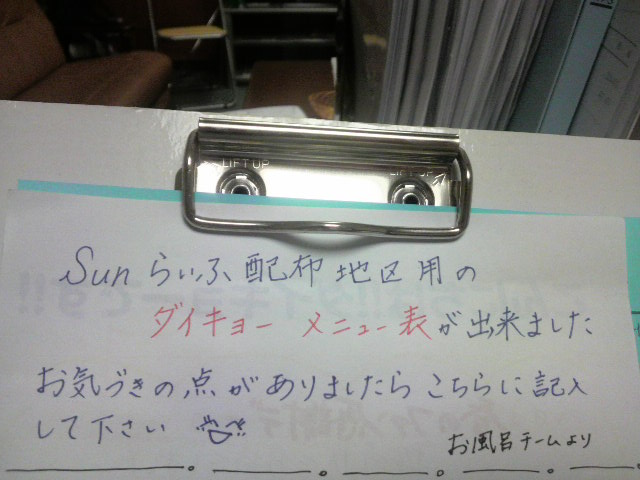 LIFT UP
LIFT UP
Sunらいふ配布地区用の
ダイキョー メニュー表が出来ました
お気づきの点がありましたらこちらに記入
して下さい
お風呂チームより